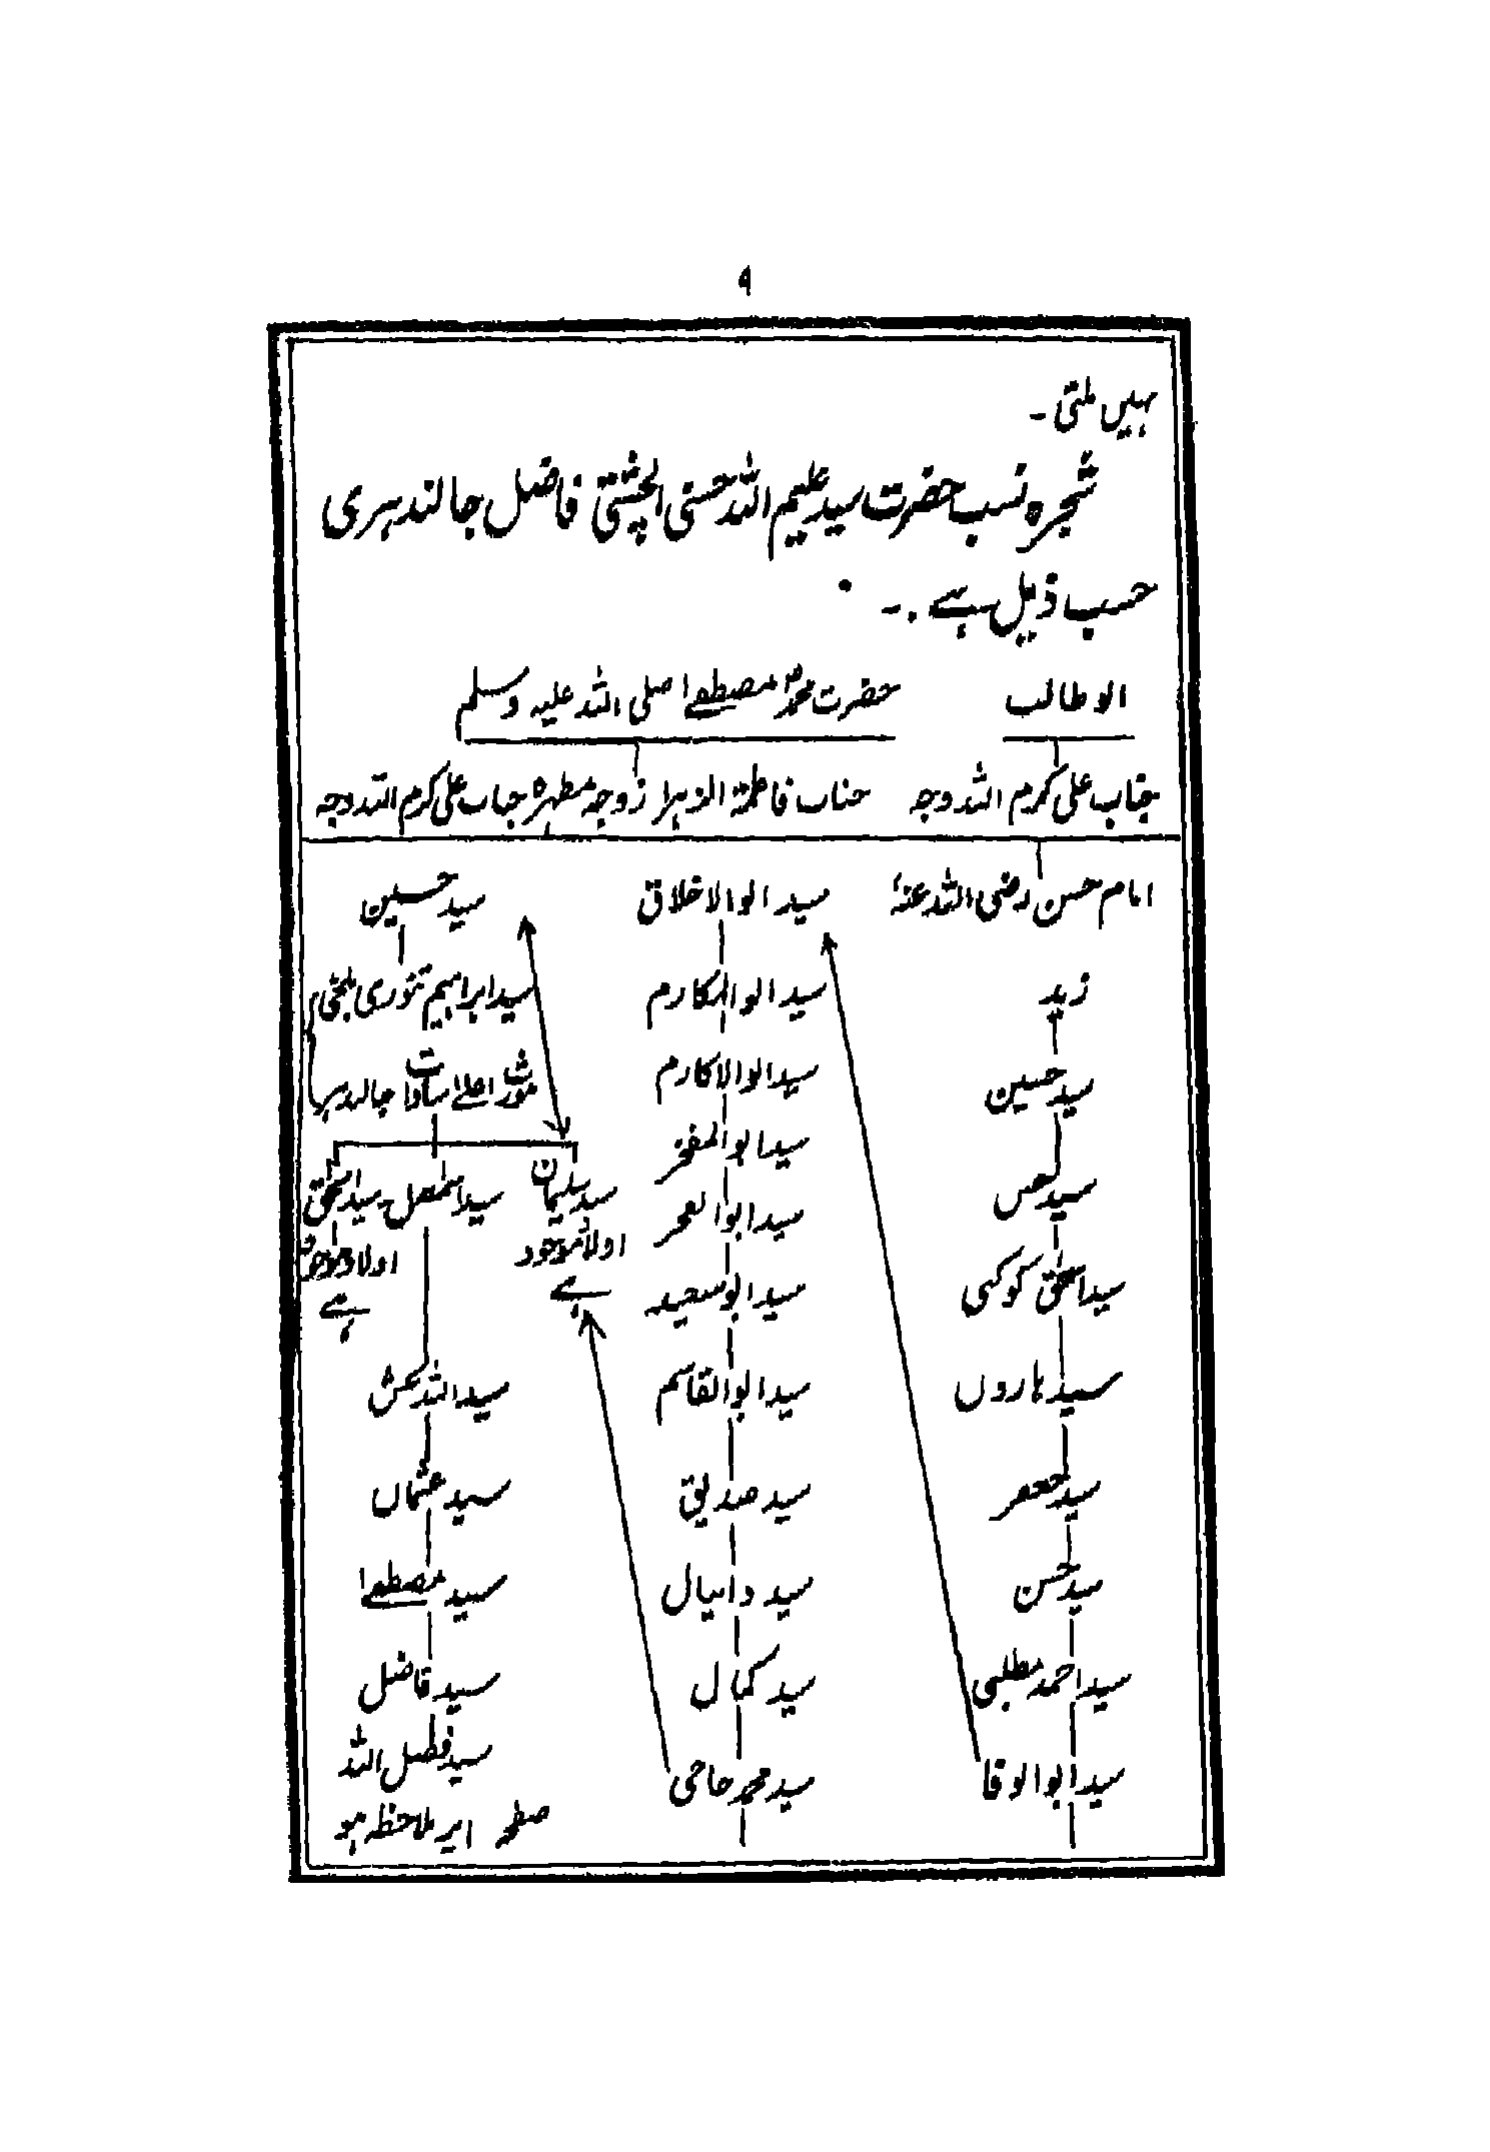 ۹
نہیں ملتی۔
شجرہ نسب حضرت سید علیم اللہ حسنی الچشتی فاضل جالندہری
حسب ذیل ہے۔
ابوطالب
حضرت محمد مصطفےٰ صلی اللہ علیہ وسلم
جناب علی کرم اللہ وجہ
جناب فاطمۃ الزہرا زوجہ مطہرہ جناب علی کرم اللہ وجہ
امام حسن رضی اللہ عنہٗ
زید
سید حسین
سید
سید اسحٰق کوکبی
سید ہاروں
سید جعفر
سید حسن
سید احمد مطلبی
سید ابوالوفا
سید ابوالاخلاق
سید ابوالمکارم
سید ابوالاکارم
سید ابوالمفخر
سید ابوالفجر
سید ابوسعید
سید ابوالقاسم
سید صدیق
سید دانیال
سید کمال
سید محمد حاجی
سید حسین
سید ابراہیم تنوری بلخی
مورث اعلےٰ سادات جالندہر
سید سلیمان
اولاد موجود
ہے
سید اسمٰعیل۔ سید اسحٰق
اولاد موجود
ہے
سید اللہ بخش
سید عثماں
سید مصطفےٰ
سید فاضل
سید فضل اللہ
صفحہ ۱ پر ملاحظہ ہو